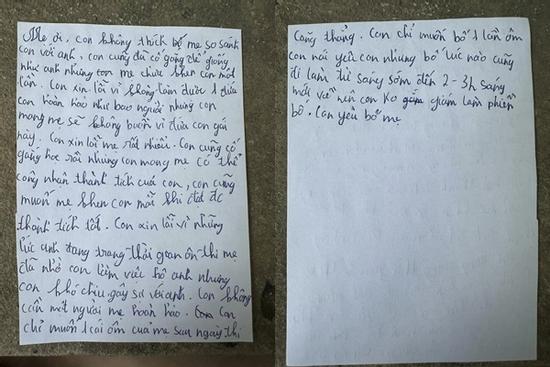 Mẹ ơi, con không thích bố mẹ so sánh
con với anh, con cũng đã cố gắng để giống
như anh nhưng mẹ chưa khen con một
lần. Con xin lỗi vì không làm được 1 đứa
con hoàn hảo như bao người nhưng con
mong mẹ sẽ không buồn vì đứa con gái
này. Con xin lỗi mẹ rất nhiều. Con cũng cố
gắng học rồi nhưng con mong mẹ có thể
công nhận thành tích của con, con cũng
muốn mẹ khen con mỗi khi đạt đc
thành tích tốt. Con xin lỗi vì những
lúc anh đang trong thời gian ôn thi mẹ
đã nhờ con làm việc hộ anh nhưng
con khó chịu, gây sự với anh. Con không
cần một người mẹ hoàn hảo. Con
chỉ muốn 1 cái ôm của mẹ sau ngày thi
căng thẳng. Con chỉ muốn bố 1 lần ôm
con nói yêu con nhưng bố lúc nào cũng
đi làm từ sáng sớm đến 2-3h sáng
mới về nên con ko dám làm phiền
bố. Con yêu bố mẹ